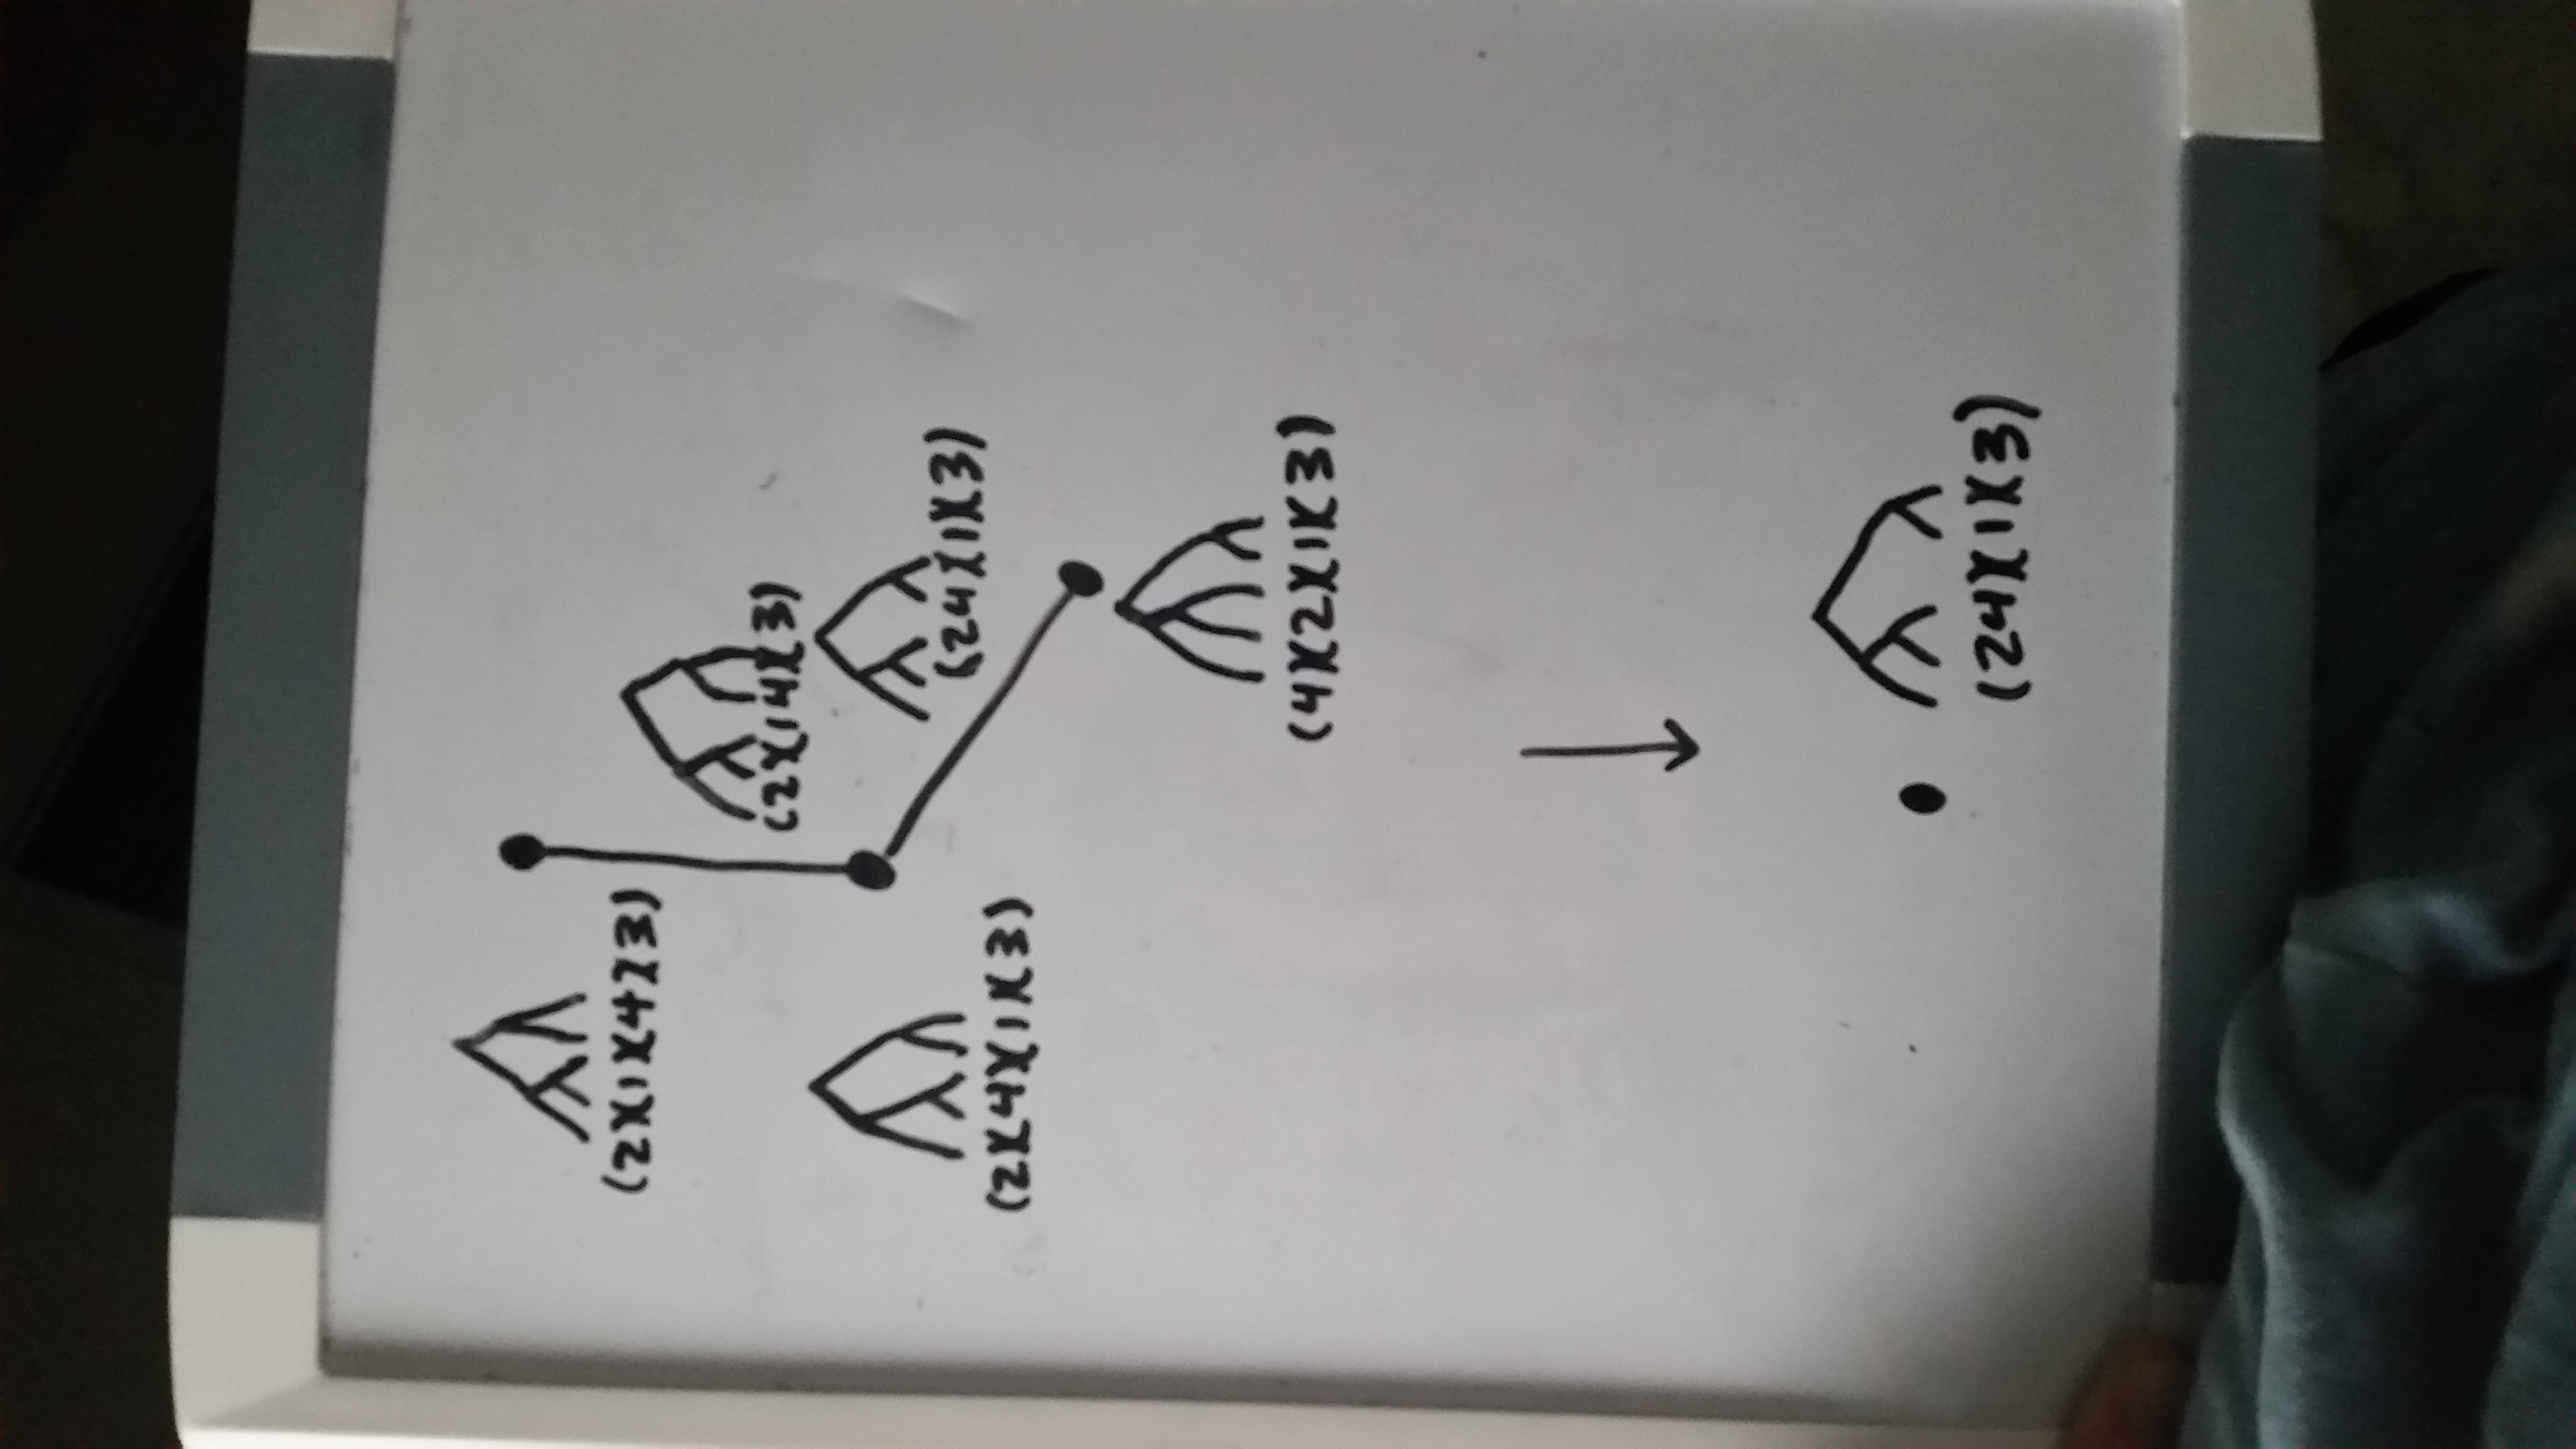 (2)(1)(4)(3)
(2)(14)(3)
(24)(1)(3)
(2)(4)(1)(3)
(4)(2)(1)(3)
(24)(1)(3)